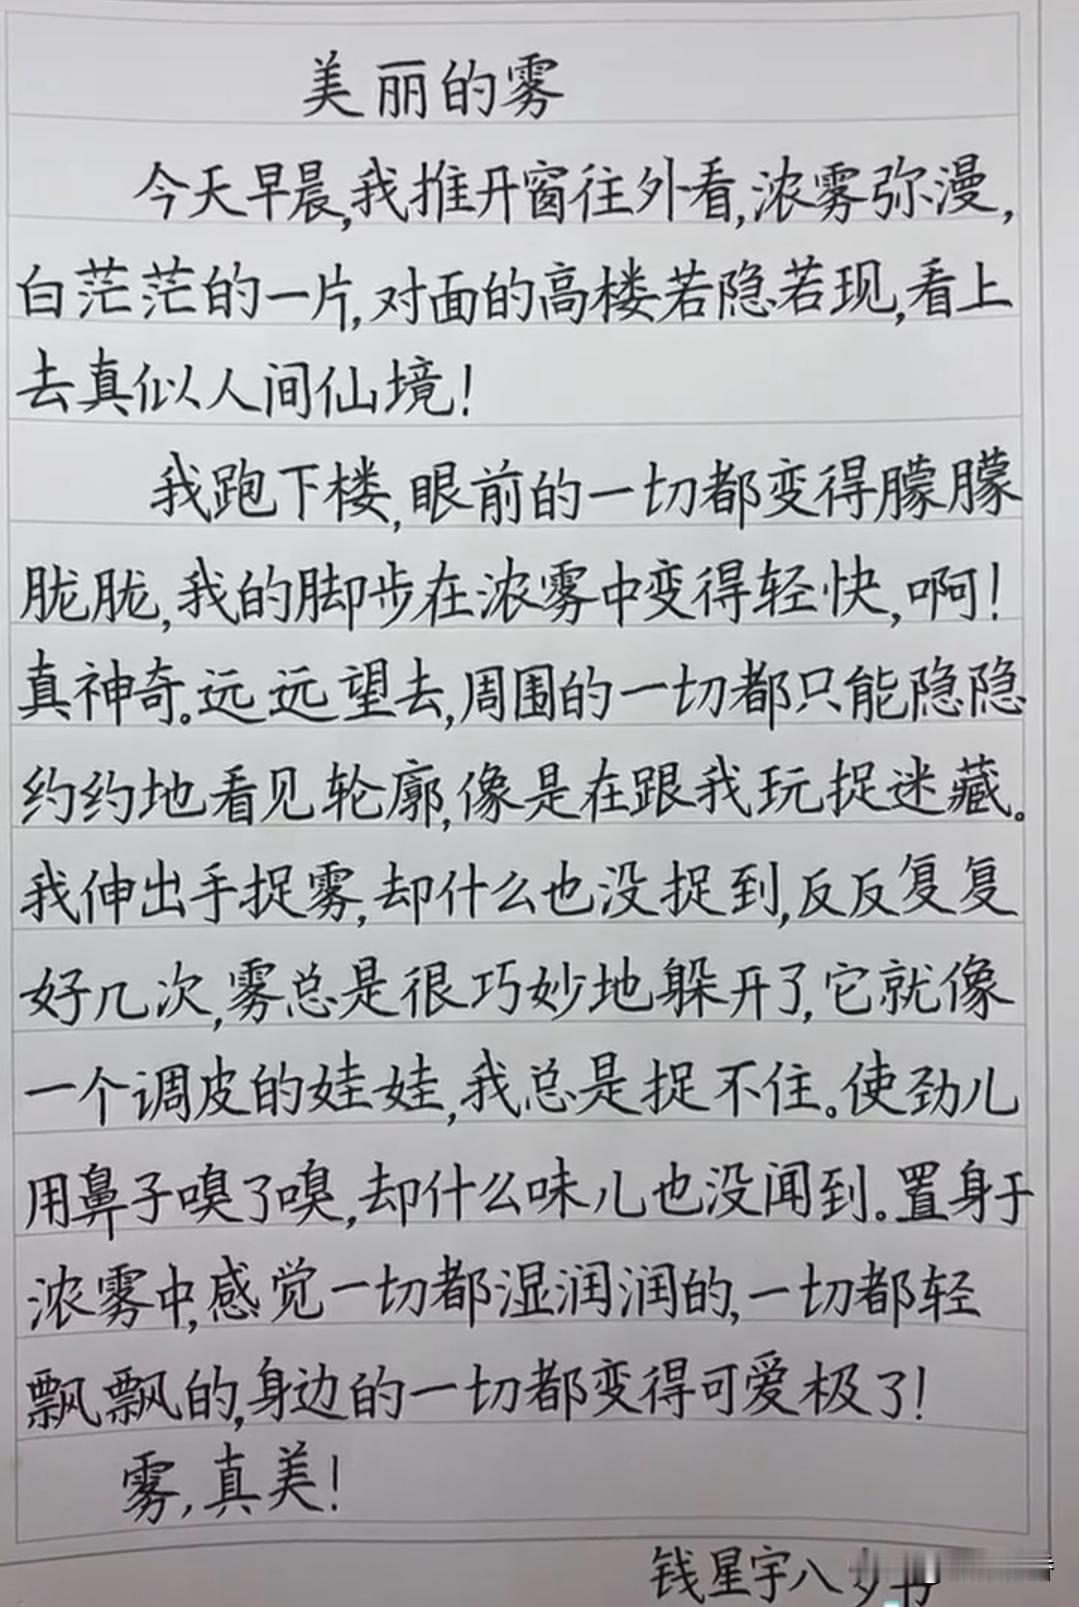 美丽的雾
今天早晨,我推开窗往外看,浓雾弥漫,
白茫茫的一片,对面的高楼若隐若现,看上
去真似人间仙境!
我跑下楼,眼前的一切都变得朦朦
胧胧,我的脚步在浓雾中变得轻快,啊!
真神奇。远远望去,周围的一切都只能隐隐
约约地看见轮廓,像是在跟我玩捉迷藏。
我伸出手捉雾,却什么也没捉到,反反复复
好几次,雾总是很巧妙地躲开了,它就像
一个调皮的娃娃,我总是捉不住。使劲儿
用鼻子嗅了嗅,却什么味儿也没闻到。置身于
浓雾中,感觉一切都湿润润的,一切都轻
飘飘的,身边的一切都变得可爱极了!
雾,真美!
钱星宇八